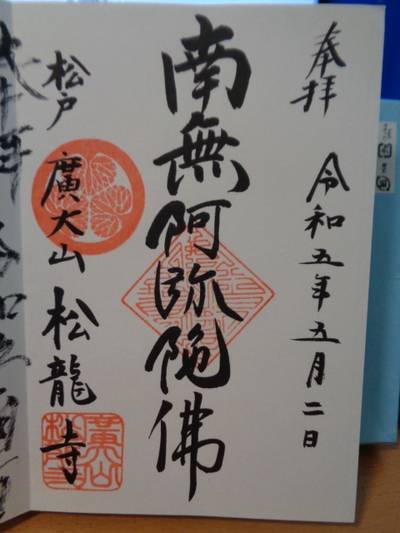 奉拝
令和五年五月二日
南無阿弥陀佛
松戸
廣大山 松龍寺